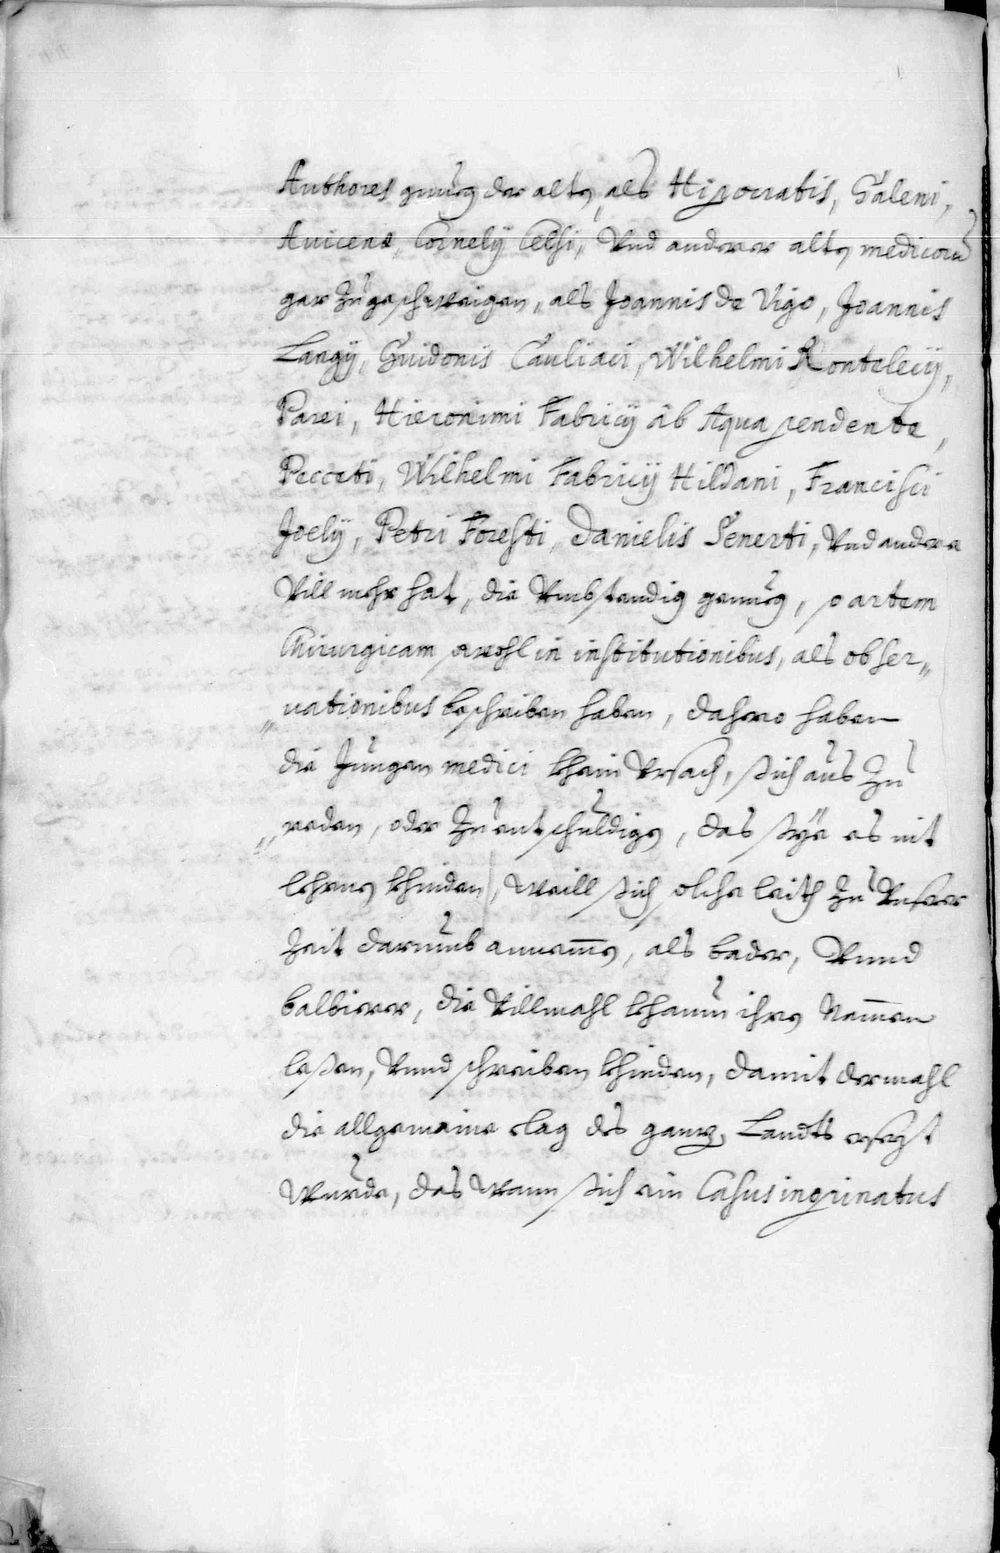 Authores genueg der alten, als Hipocratis, Galeni,
Auicenæ, Cornelij Celsi, Vnd anderer alten medicorũ
gar Zúgeschweigen, als Joannis de Vigo, Joannis
Langij, Guidonis Cauliaci, Wilhelmi Rontelecij,
Parei, Hieronimi Fabricij ab Aqua pendente,
Pecceti, Wilhelmi Fabricij Hildani, Francisci
Joelij, Petri Foresti, Danielis Senerti, Vnd andere
Vill mehr hat, die Vmbstendig genueg, so artem
Chirurgicam sowohl in institutionibus, als obser„
„uationibus beschriben haben, dahero haben
die Jungen medici khain Vrsach, sich aús Zú
„reden, oder Zú entschúldigen, das sÿe es nit
lehrnen khinden, Weill sich solche leith Zú Vnserer
Zeit darúmb annemen, als bader, Vnnd
balbierer, die Villmahl khaúm ihren Namen
lesen, Vnnd schreiben khinden, damit dermahl
die allgemaine clag des ganzen Landts ersezt
Wúrde, das Wann sich ein Casus inopinatus